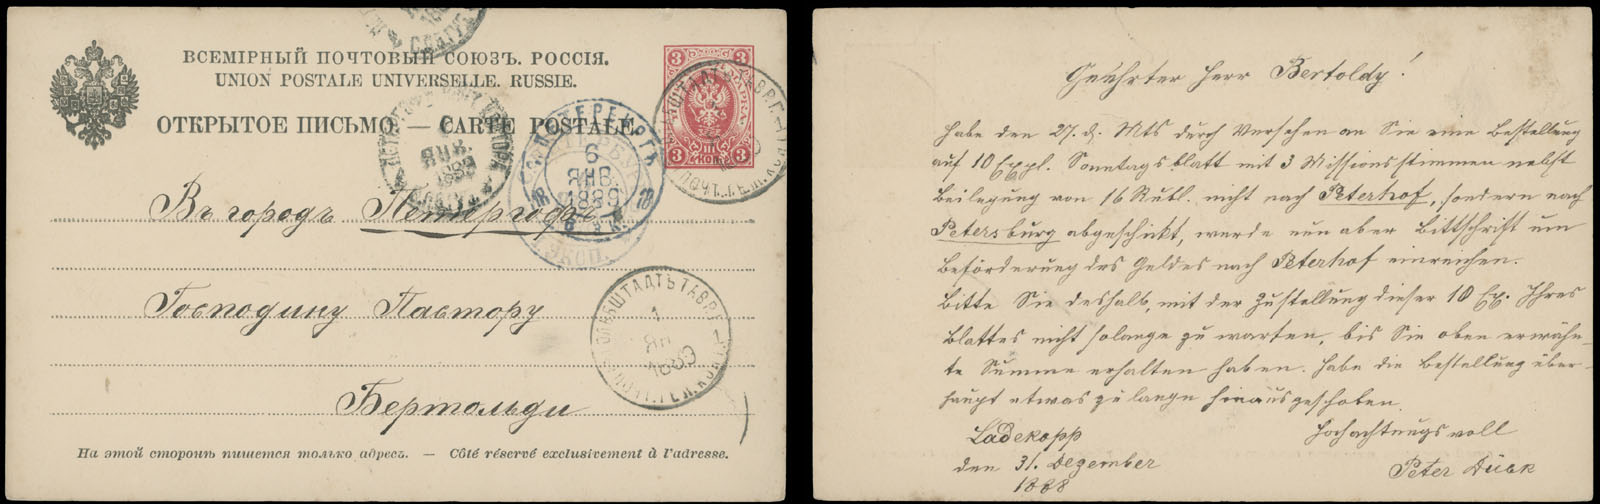 ВСЕМІРНЫЙ ПОЧТОВЫЙ СОЮЗЪ. РОССІЯ.
UNION POSTALE UNIVERSELLE. RUSSIE.
ОТКРЫТОЕ ПИСЬМО. — CARTE POSTALE.
3 3
3 3
С. ПЕТЕРБУРГЪ
6
ЯНВ.
1889
ЯНВ.
1889
Въ городъ Петергофъ
Господину Пастору
1
ЯН
1889
Бертольди
На этой сторонѣ пишется только адресъ. — Côté réservé exclusivement à l'adresse.
Geehrter Herr Bertoldy!
Habe den 27. d. Mts durch Versehen an Sie eine Bestellung
auf 10 Expl. Sonntagsblatt mit 3 Missionsstimmen nebst
Beilegung von 16 Rubl. nicht nach Peterhof, sondern nach
Petersburg abgeschickt, werde nun aber Bittschrift um
Beförderung des Geldes nach Peterhof einreichen.
Bitte Sie deshalb, mit der Zustellung dieser 10 Ex. Ihres
Blattes nicht solange zu warten, bis Sie oben erwähn-
te Summe erhalten haben. Habe die Bestellung über-
haupt etwas zu lange hinausgeschoben.
Ladekopp
den 31. Dezember
1888
Hochachtungsvoll
Peter Dück